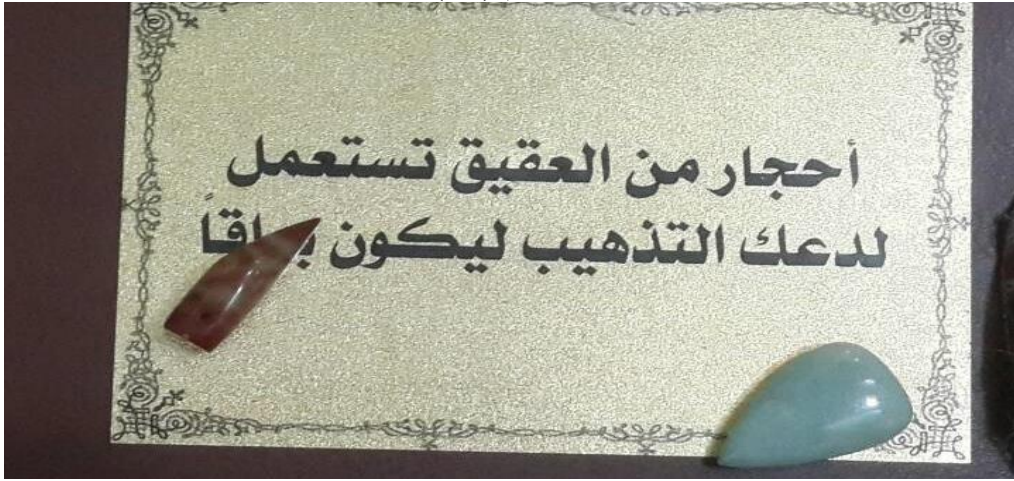 أحجار من العقيق تستعمل
لدعك التذهيب ليكون